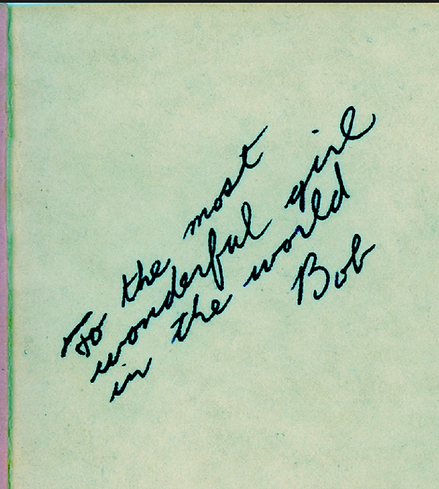 To the most
wonderful girl
in the world
Bob